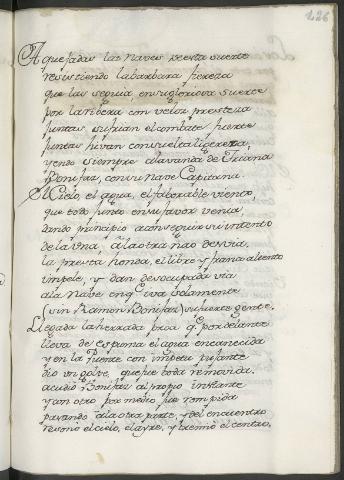 126
Aquejadas las Naves de esta suerte
resistiendo la barbara fiereza
que las seguia, en su gloriosa suerte
por la ribera con veloz presteza
juntas sufrian el combate fuerte
juntas hivan con suelta ligereza,
yendo siempre a la vanda de Triana
Bonifaz, con su Nave Capitana.
El Cielo, el agua, el faborable viento,
que todo junto en su favor venia
dando principio a conseguir su intento
de la una, a la otra nao desvia,
la presta honda, el libre y franco aliento
impele, y dan desocupada via
a la Nave en q.e iva solamente
(sin Ramon Bonifaz) su fuerte gente.
Llegada la herrada proa q.e por delante
lleva de espuma el agua encanecida
y en la Puente con impetu pujante
dio un golpe, que fue toda removida.
acudio Bonifaz al propio instante
y con otro por medio fue rompida
pasando a la otra parte, y del encuentro
resonó el cielo, el ayre, y tremió el centro.